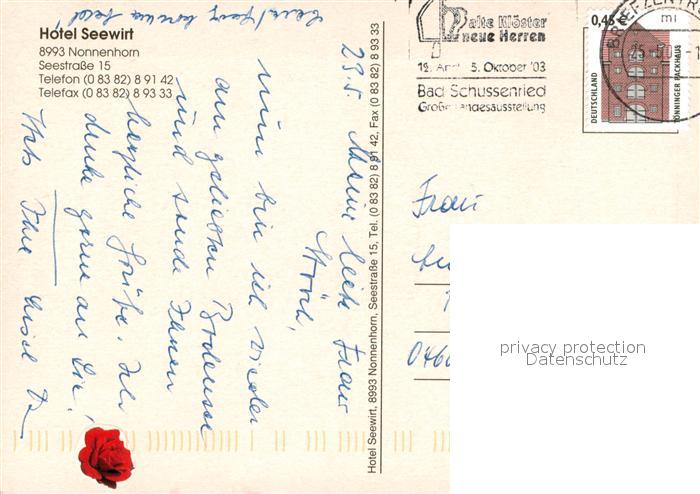 Hotel Seewirt
8993 Nonnenhorn
Seestraße 15
Telefon (0 83 82) 8 91 42
Telefax (0 83 82) 8 93 33
23.5. Meine liebe Frau
nun bin ich wieder
am geliebten Bodensee
und sende Ihnen
herzliche Grüße. Ich
denke gerne an Sie!
Stets Ihre
Hotel Seewirt, 8993 Nonnenhorn, Seestraße 15, Tel. (0 83 82) 8 91 42, Fax (0 83 82) 8 93 33
alte Klöster
neue Herren
5. Oktober '03
Bad Schussenried
Große Landesausstellung
BRIEFZENTRUM
mi
0,45 €
DEUTSCHLAND
TÖNNINGER PACKHAUS
Frau
privacy protection
Datenschutz